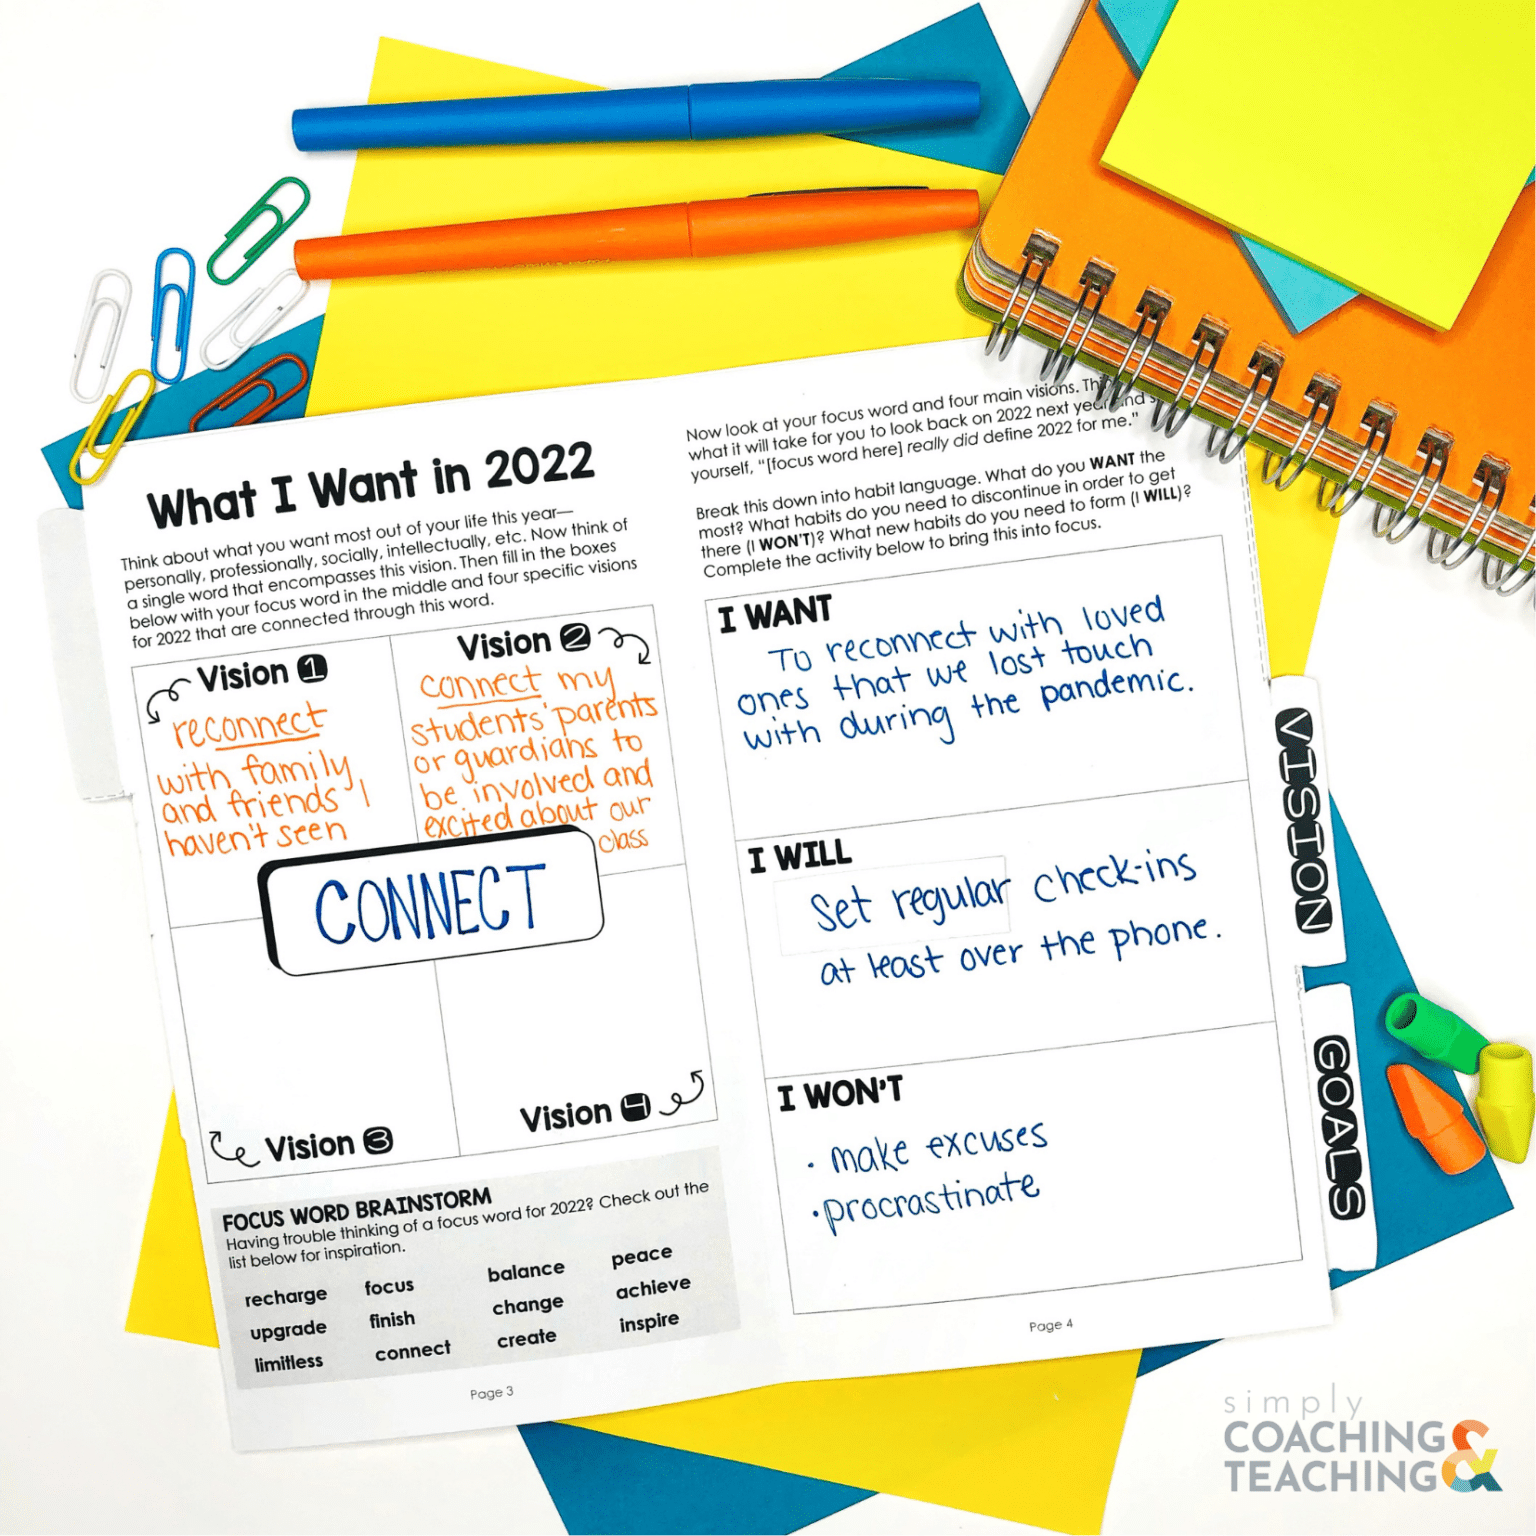 What I Want in 2022
Think about what you want most out of your life this year—
personally, professionally, socially, intellectually, etc. Now think of
a single word that encompasses this vision. Then fill in the boxes
below with your focus word in the middle and four specific visions
for 2022 that are connected through this word.
Vision 1
reconnect
with family
and friends I
haven't seen
Vision 2
connect my
students' parents
or guardians to
be involved and
excited about our
class
CONNECT
Vision 3
Vision 4
FOCUS WORD BRAINSTORM
Having trouble thinking of a focus word for 2022? Check out the
list below for inspiration.
recharge focus balance peace
upgrade finish change achieve
limitless connect create inspire
Page 3
Now look at your focus word and four main visions.
what it will take for you to look back on 2022 next year
yourself, “[focus word here] really did define 2022 for me.”
Break this down into habit language. What do you WANT the
most? What habits do you need to discontinue in order to get
there (I WON'T)? What new habits do you need to form (I WILL)?
Complete the activity below to bring this into focus.
I WANT
To reconnect with loved
ones that we lost touch
with during the pandemic.
I WILL
Set regular check-ins
at least over the phone.
I WON'T
• make excuses
• procrastinate
Page 4
VISION
GOALS
simply
COACHING &
TEACHING